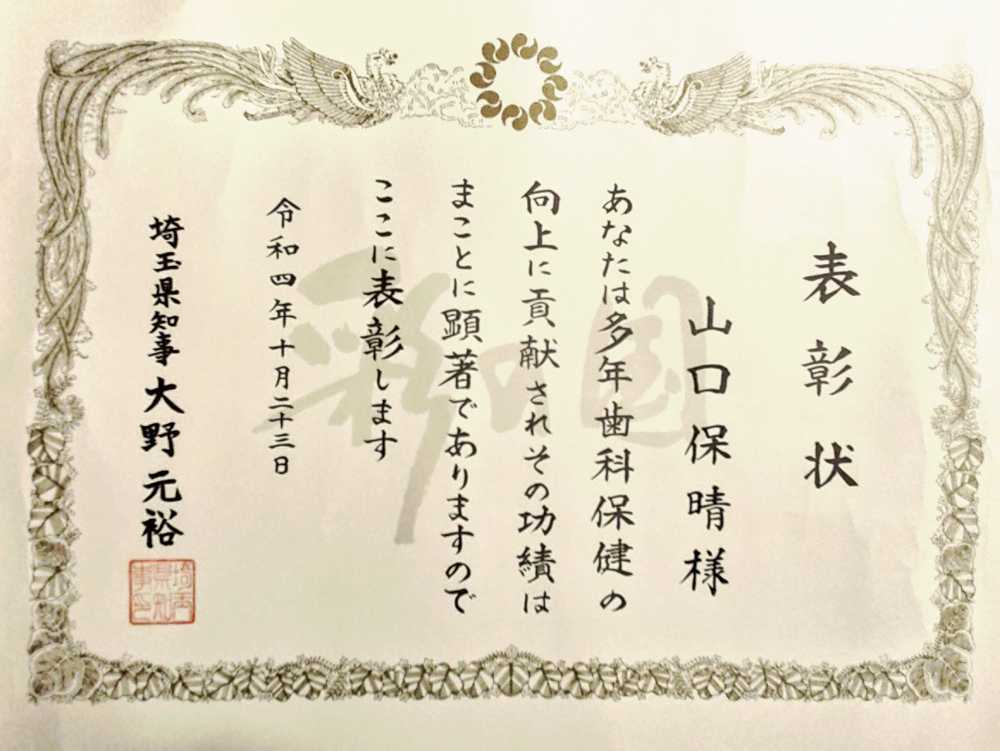 表彰状
山口保晴様
あなたは多年歯科保健の
向上に貢献されその功績は
まことに顕著でありますので
ここに表彰します
令和四年十月二十三日
埼玉県知事 大野元裕
彩の国
埼玉県知事印